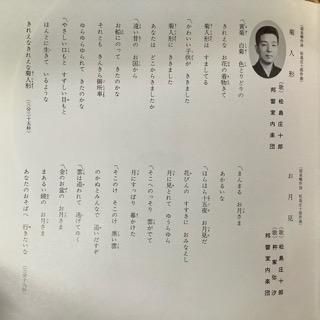 菊人形
(歌) 松島庄十郎
邦響室内楽団
黄菊 白菊 色とりどりの
きれいな お花の着物きて
菊人形は すましてる
かわいい子供が ききました
菊人形に ききました
あなたは どこからきたのかな
遠い昔の お国から
お船にのって きたのかな
それとも きんきら御所車
ゆらゆらゆられて きたのかな
やさしい口もと すずしい目もと
ほんとに生きて いるような
きれいなきれいな菊人形
お月見
(歌) 松島庄十郎
邦響室内楽団
まんまる お月さま
あかるいな
ほんほら十五夜 お月見だ
花びんの すすきに おみなえし
月に見とれて ゆうらゆら
そこへのっそり 雲がでて
月にすっぽり 幕かけた
そこのけ そこのけ 黒い雲
のかぬとみんなで 追いだすぞ
雲は追われて 逃げてゆく
金のお盆の お月さま
まあるい鏡の お月さま
あなたのおそばへ 行きたいな